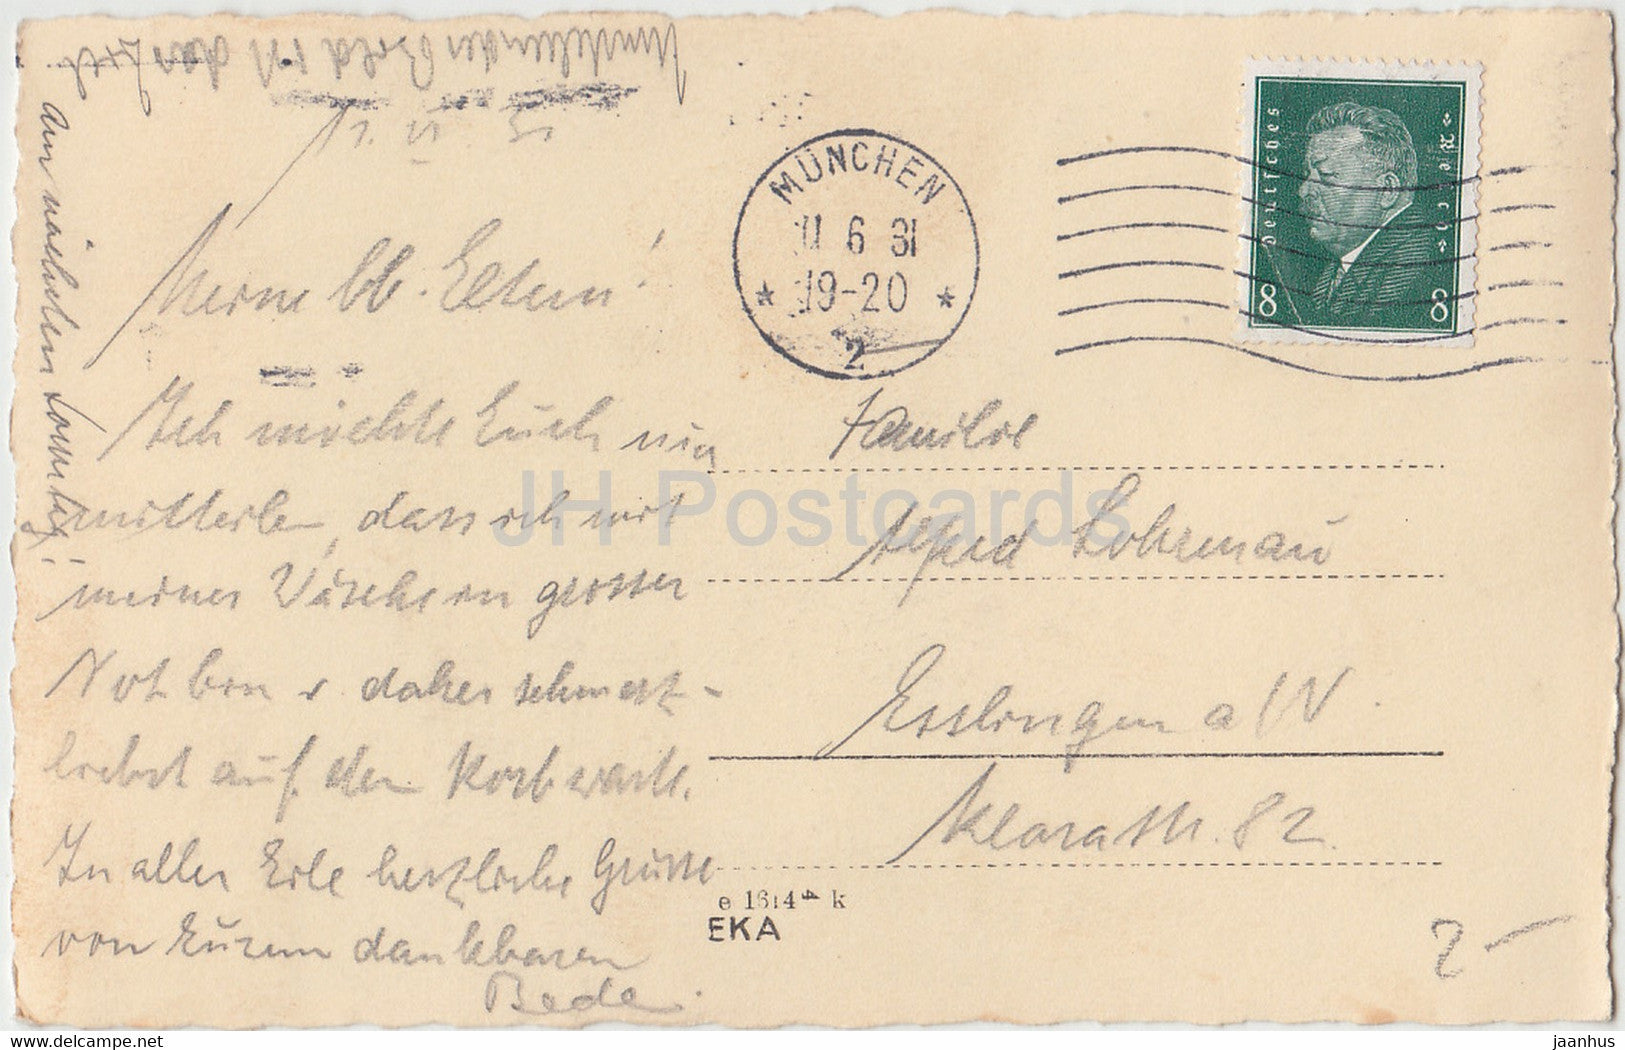 11. VI. 31
Meine lb. Eltern!
Ich möchte Euch nur
mitteilen, dass ich mit
meiner Wäsche in grosser
Not bin u. daher schmerz-
lichst auf den Korb warte.
In aller Eile herzliche Grüsse
von Eurem dankbaren
am nächsten Sonntag!
MÜNCHEN
11 6 31
19-20
2
Deutsches Reich
8 8
Familie
Alfred Lohrmann
Esslingen a/N.
Klarastr. 82
e 1614 k
EKA
2-
JH Postcards
htpm.com
jaanhus